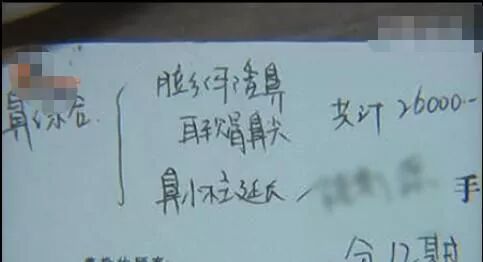 鼻综合
膨体隆鼻
耳软骨鼻尖 共计26000.-
鼻小柱延长 手
分12期